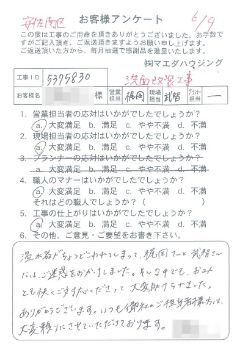 安佐南区 お客様アンケート 6/9
この度は工事のご用命を頂きありがとうございました。お手数で
すがご記入頂き、ご返送頂きますようお願い申し上げます。
ご返送頂いた方から、毎月抽選で感謝品を進呈いたします。
㈱マエダハウジング
工事ID 5395830 洗面改修工事
お客様名 様 営業担当 梶岡 現場担当 武智 プランナー担当 ―
1. 営業担当者の応対はいかがでしたでしょうか?
a 大変満足 b. 満足 c. やや不満 d. 不満
2. 現場担当者の応対はいかがでしたでしょうか?
a 大変満足 b. 満足 c. やや不満 d. 不満
3. プランナーの応対はいかがでしたでしょうか?
a. 大変満足 b. 満足 c. やや不満 d. 不満
4. 職人のマナーはいかがでしたでしょうか?
a 大変満足 b. 満足 c. やや不満 d. 不満
それはどの職人でしょう( )
5. 工事の仕上がりはいかがでしたでしょうか?
a 大変満足 b. 満足 c. やや不満 d. 不満
6. その他、ご意見・ご要望をお書き下さい。
梶岡さん 武智さん
にはご迷惑をおかけしました。
大変助けられました。
ありがとうございます。いつも御社のご担当者様方は
大変頼りにさせていただいております。